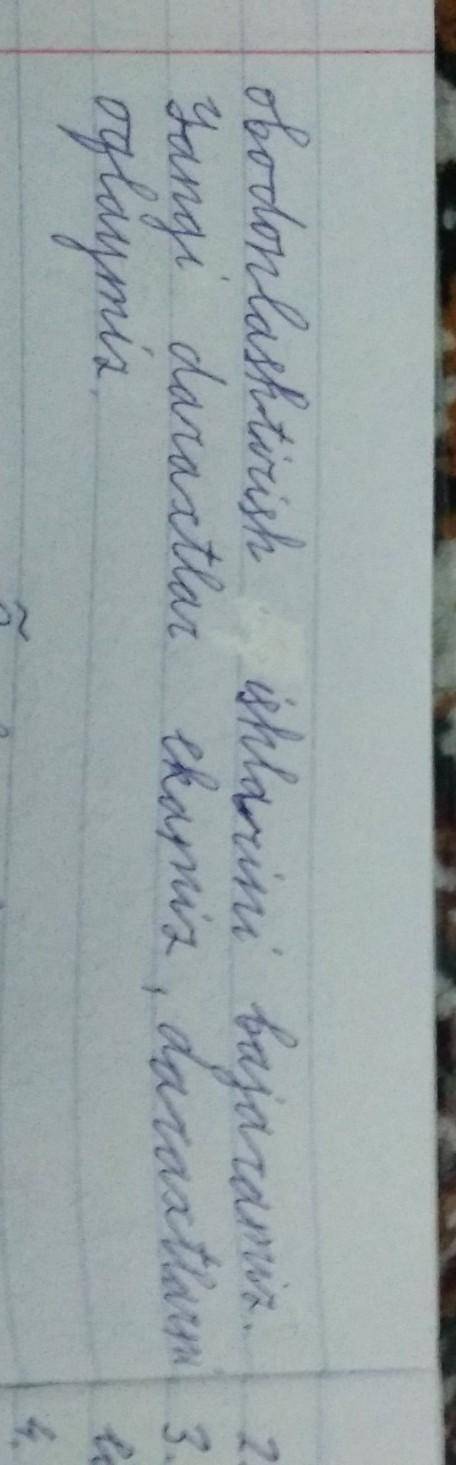 obodonlashtirish ishlarini bajaramiz.
Yangi daraxtlar ekamiz, daraxtlarni
oqlaymiz.
2.
3.
4.